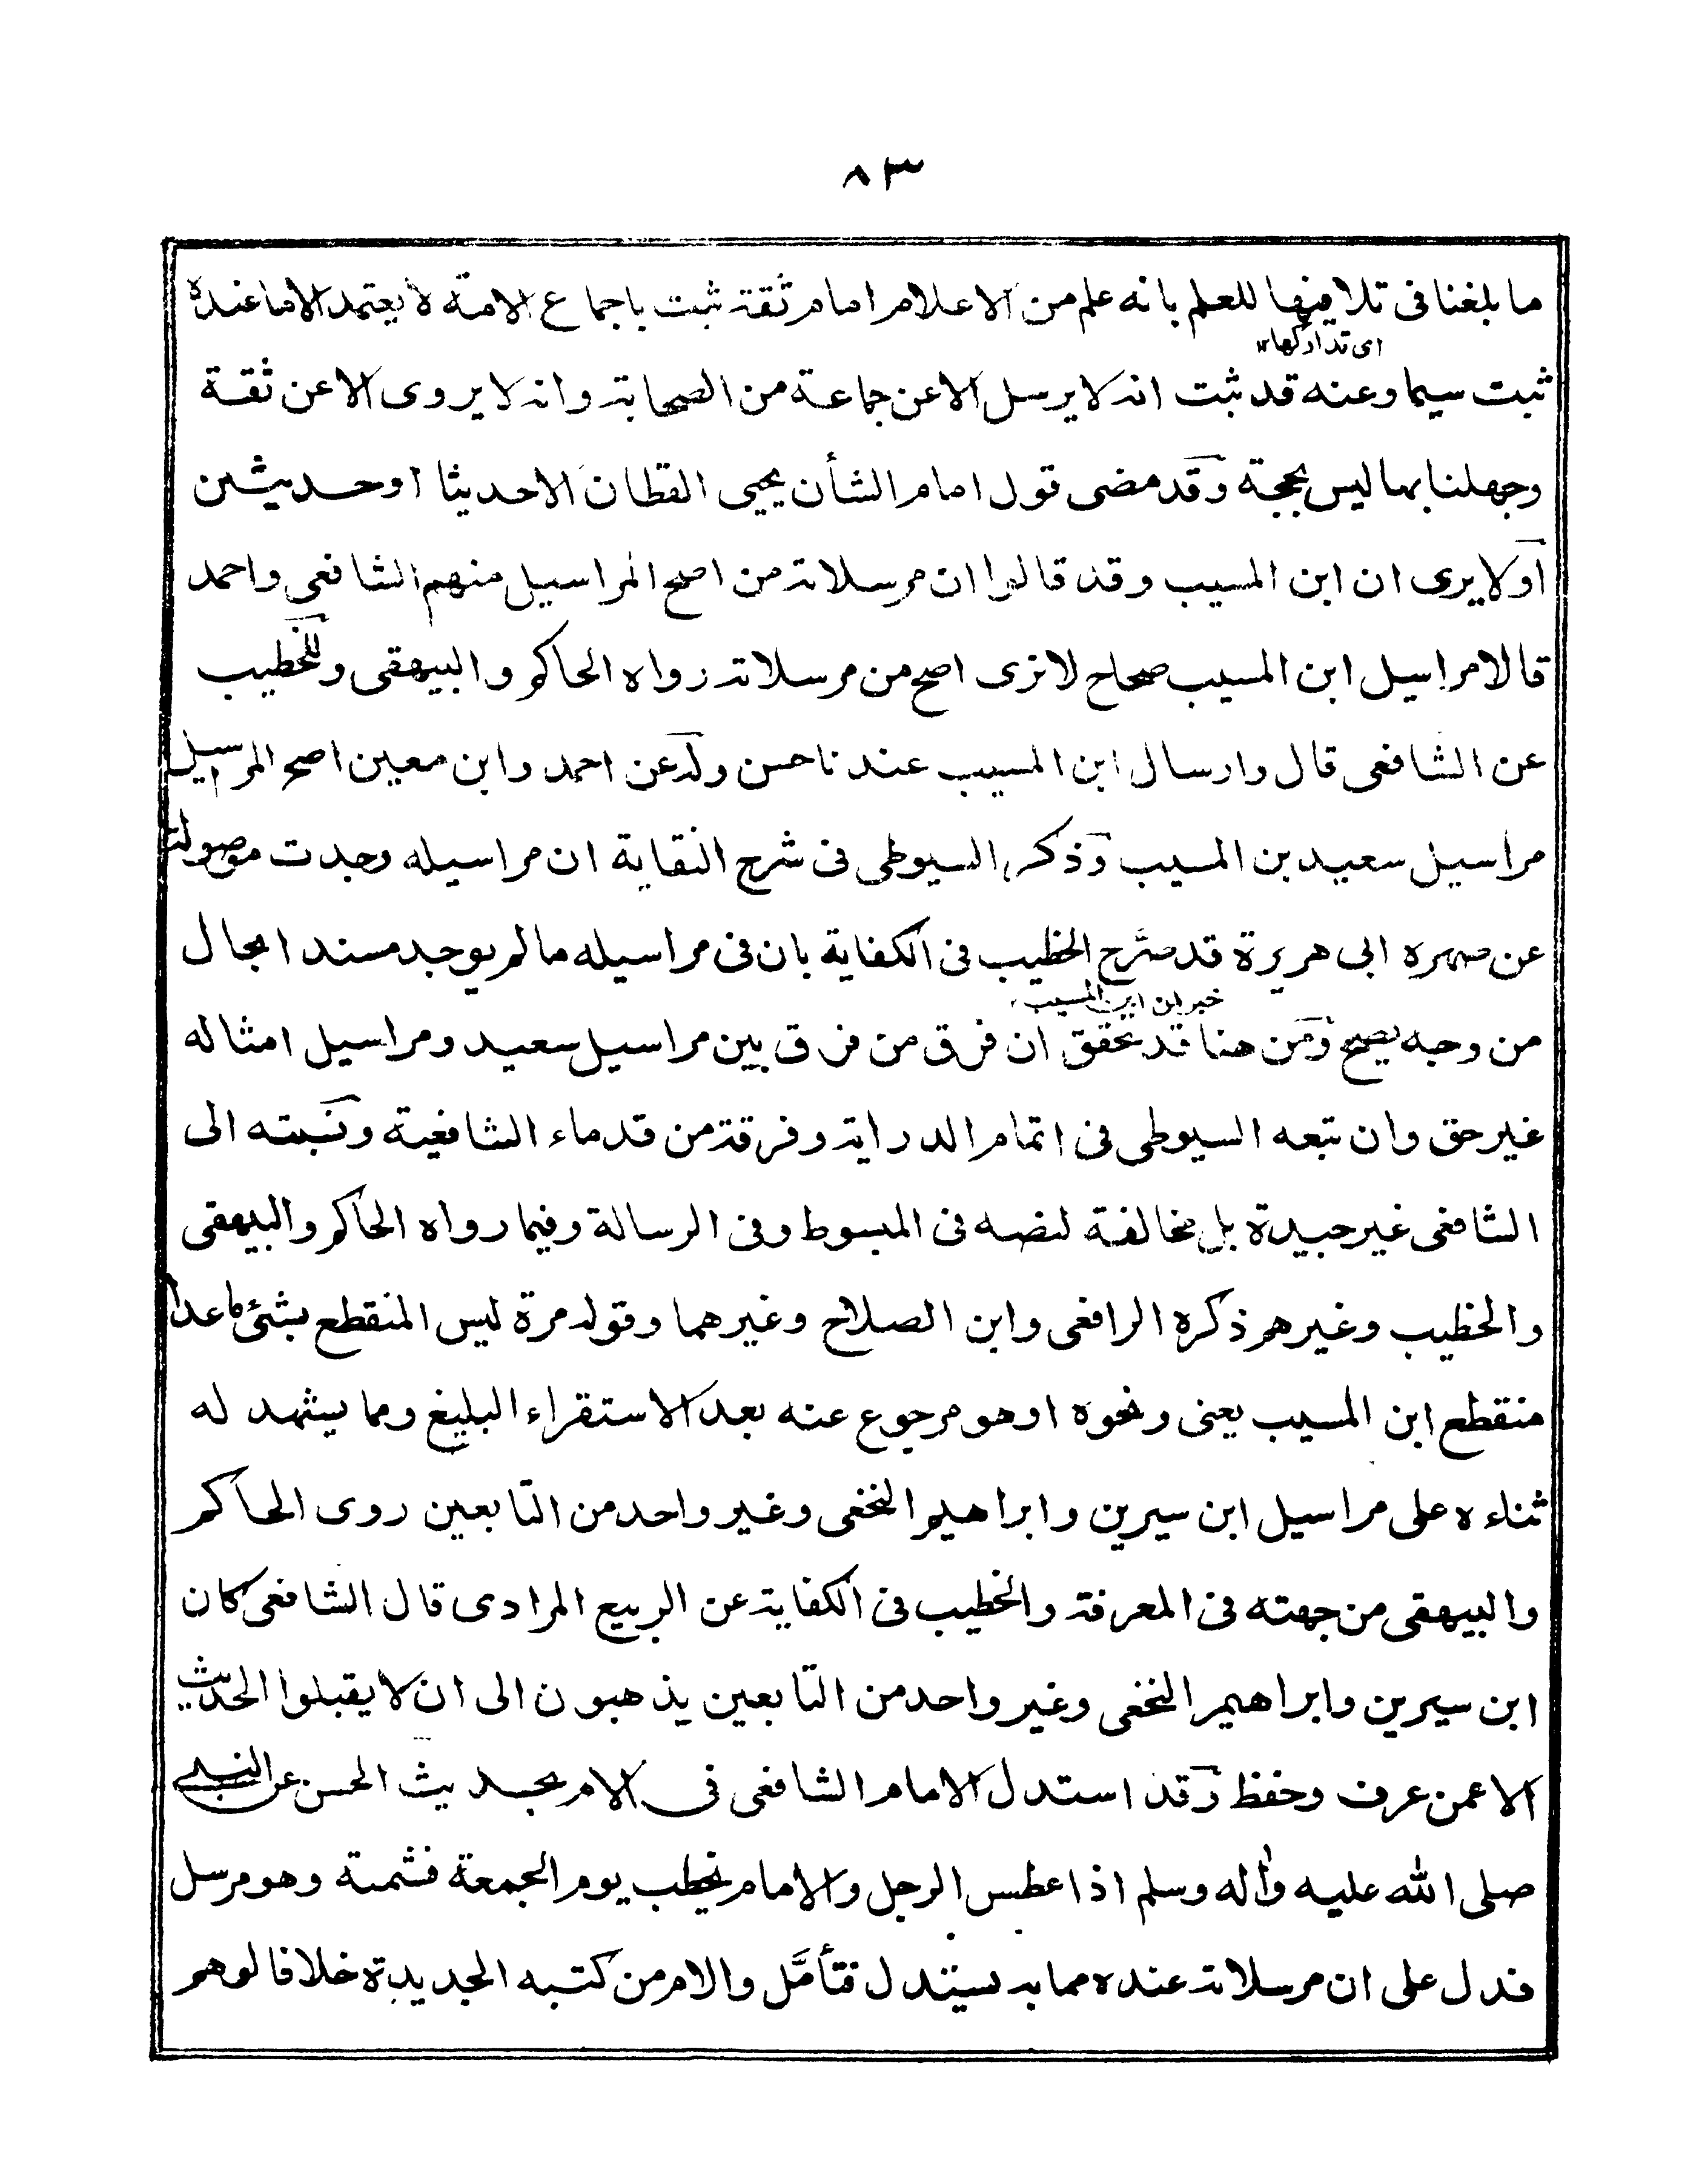 ٨٣
ما بلغنا فى تلافيها للعلم بانه علم من الاعلام امام ثقة ثبت باجماع الامة لا يعتمد الا ما عنده
اى تداركها ١٢
ثبت سيما وعنه قد ثبت انه لا يرسل الا عن جماعة من الصحابة وانه لا يروى الا عن ثقة
وجهلنا بها ليس بحجة وقد مضى قول امام الشأن يحيى القطان الا حديثا او حديثين
اولا يرى ان ابن المسيب وقد قالوا ان مرسلاته من اصح المراسيل منهم الشافعى واحمد
قالا مراسيل ابن المسيب صحاح لا نرى اصح من مرسلاته رواه الحاكم والبيهقى وللخطيب
عن الشافعى قال وارسال ابن المسيب عندنا حسن وله عن احمد وابن معين اصح المراسيل
مراسيل سعيد بن المسيب وذكر السيوطى فى شرح النقاية ان مراسيله وجدت موصولة
عن صهره ابى هريرة قد صرّح الخطيب فى الكفاية بان فى مراسيله ما لم يوجد مسندا بحال
خبر ان ابن المسيب
من وجه يصح ومن هنا قد تحقق ان فرق من فرق بين مراسيل سعيد ومراسيل امثاله
غير حق وان تبعه السيوطى فى اتمام الدراية وفرقة من قدماء الشافعية ونسبته الى
الشافعى غير جيدة بل مخالفة لنصه فى المبسوط وفى الرسالة وفيما رواه الحاكم والبيهقى
والخطيب وغيرهم ذكره الرافعى وابن الصلاح وغيرهما وقوله مرة ليس المنقطع بشئ ما عدا
منقطع ابن المسيب يعنى ونحوه او هو مرجوع عنه بعد الاستقراء البليغ ومما يشهد له
ثناءه على مراسيل ابن سيرين وابراهيم النخعى وغير واحد من التابعين روى الحاكم
والبيهقى من جهته فى المعرفة والخطيب فى الكفاية عن الربيع المرادى قال الشافعى كان
ابن سيرين وابراهيم النخعى وغير واحد من التابعين يذهبون الى ان لا يقبلوا الحديث
الا عمن عرف وحفظ وقد استدل الامام الشافعى فى الام بحديث الحسن عن النبى
صلى الله عليه واله وسلم اذا عطس الرجل والامام يخطب يوم الجمعة فشمته وهو مرسل
فدل على ان مرسلاته عنده مما به يستدل فتأمّل والام من كتبه الجديدة خلافا لوهم